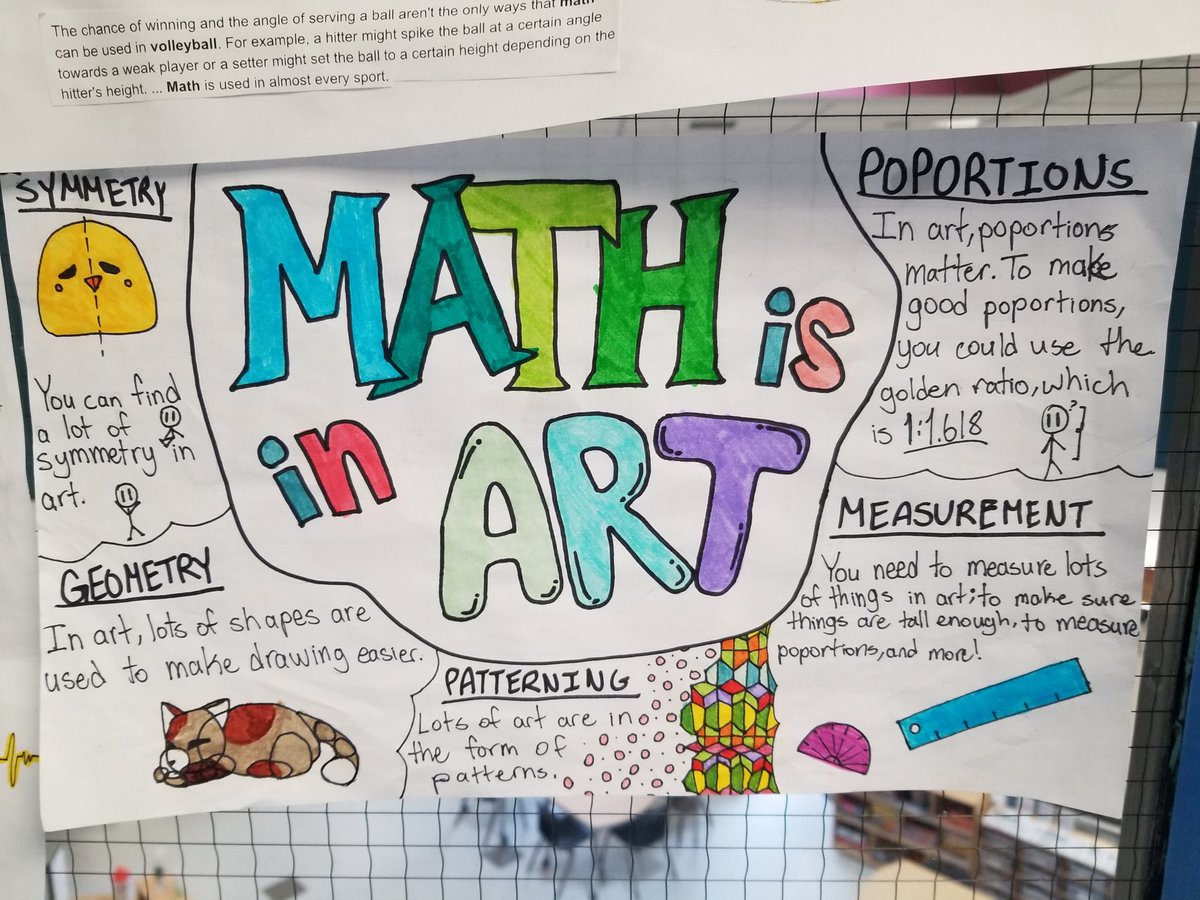 The chance of winning and the angle of serving a ball aren't the only ways that math
can be used in volleyball. For example, a hitter might spike the ball at a certain angle
towards a weak player or a setter might set the ball to a certain height depending on the
hitter's height. ... Math is used in almost every sport.
SYMMETRY
You can find
a lot of
symmetry in
art.
MATH is
in ART
POPORTIONS
In art, poportions
matter. To make
good poportions,
you could use the
golden ratio, which
is 1:1.618
?
GEOMETRY
In art, lots of shapes are
used to make drawing easier.
PATTERNING
Lots of art are in
the form of
patterns.
MEASUREMENT
You need to measure lots
of things in art; to make sure
things are tall enough, to measure
poportions, and more!